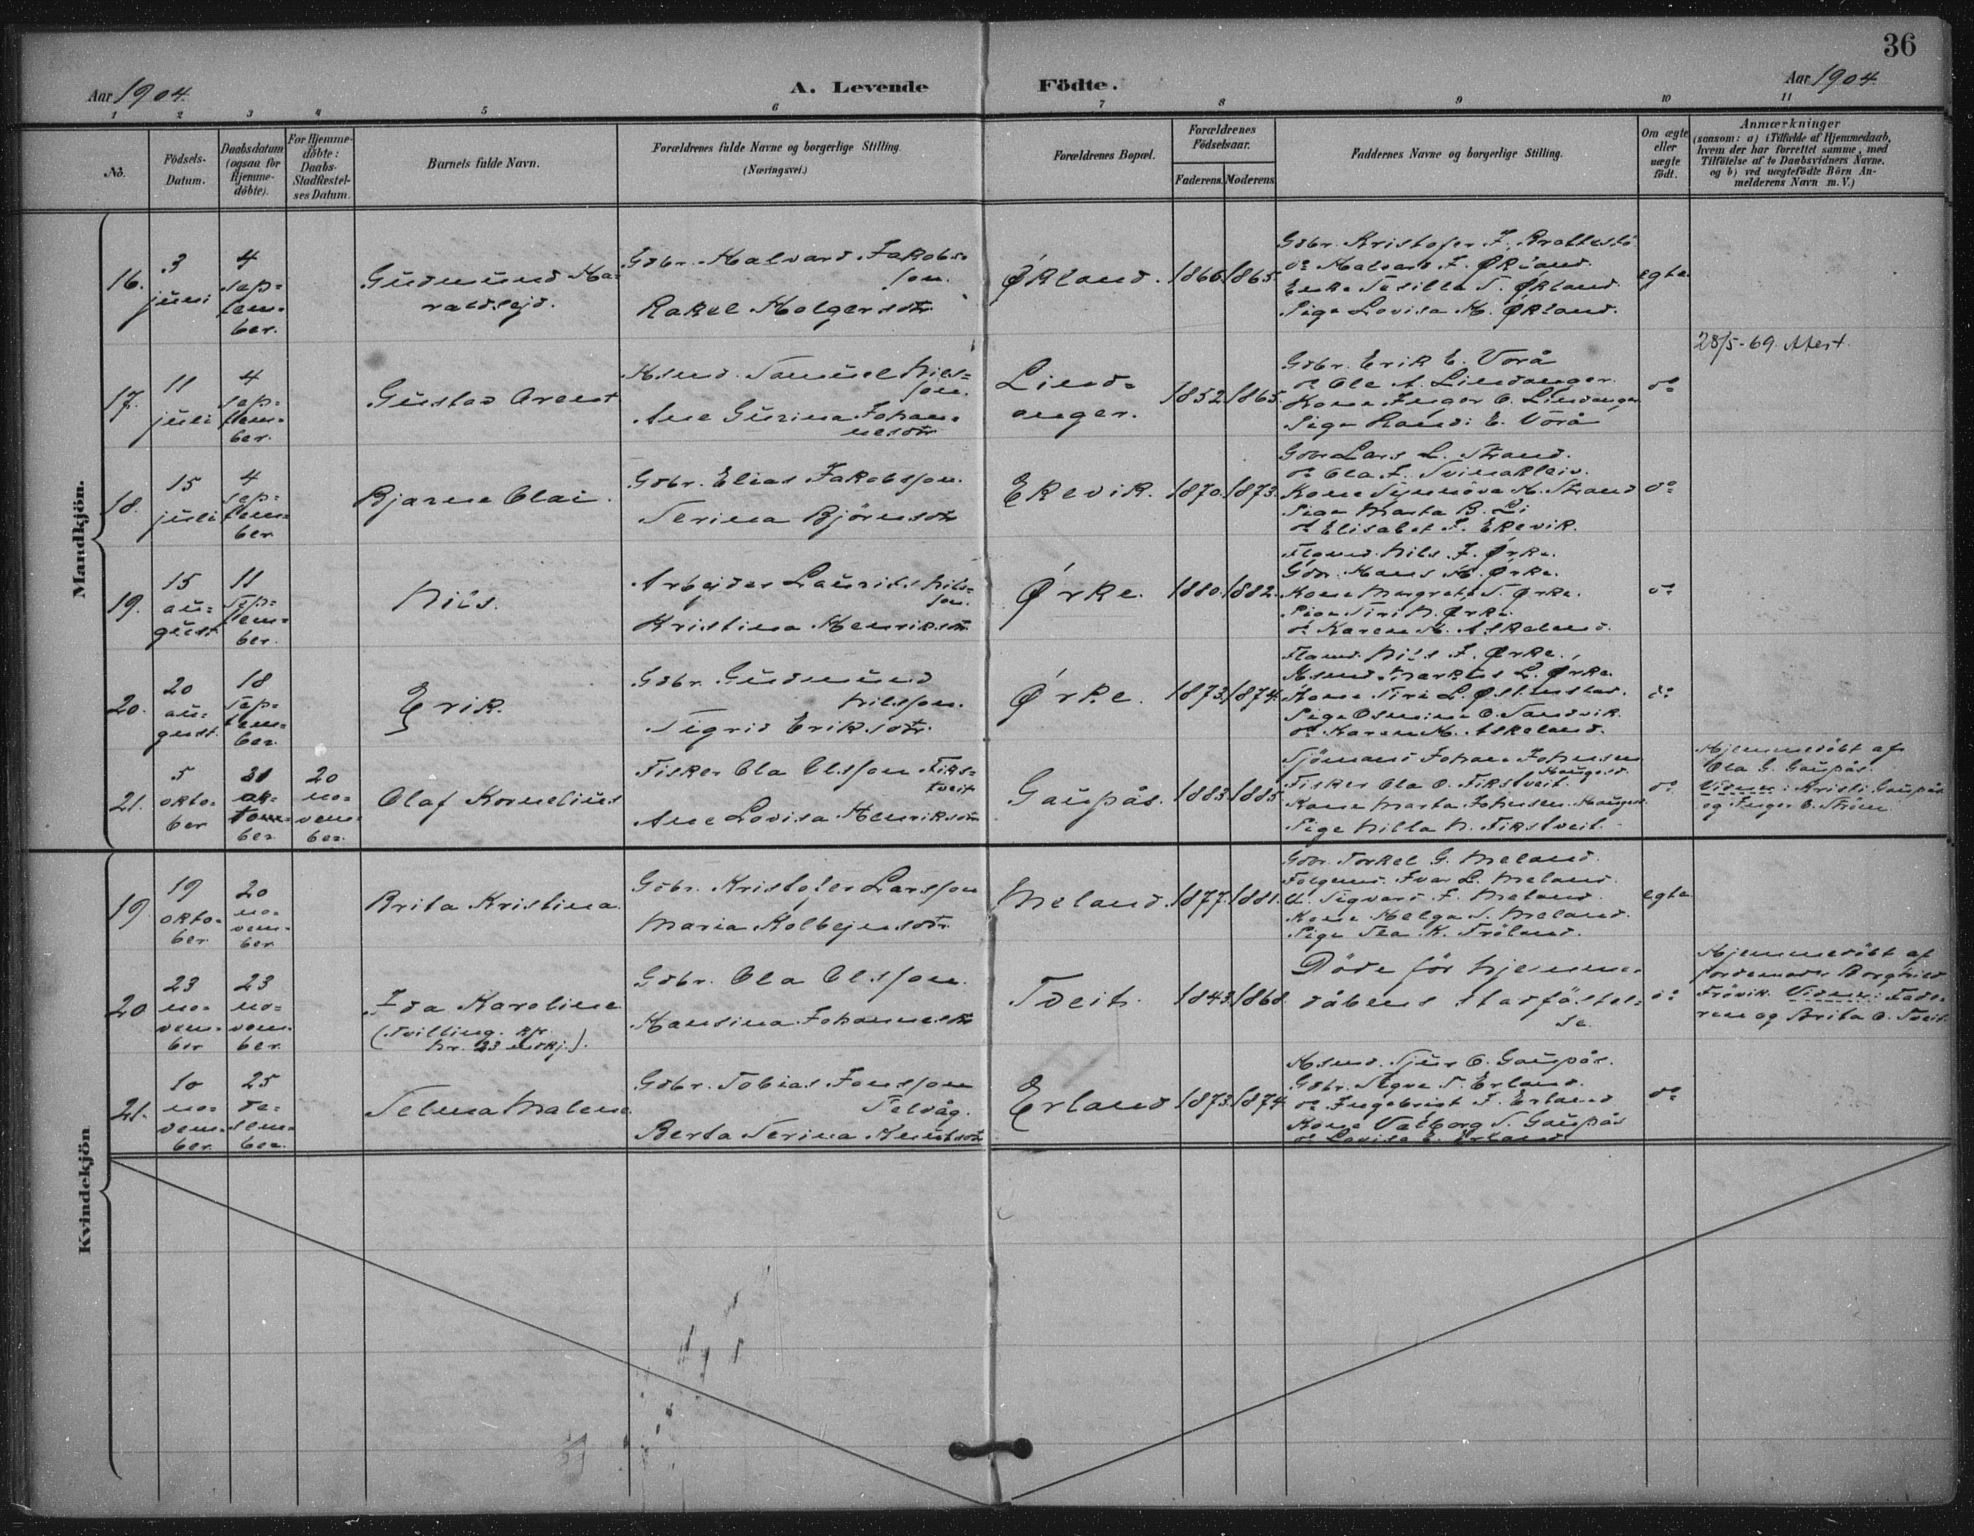 36
Aar 1904.
A. Levende Födte.
Aar 1904.
1 2 3 4 5 6 7 8 9 10 11
No.
Födsels-
Datum.
Daabsdatum
(ogsaa for
Hjemme-
döbte).
For Hjemme-
döbte:
Daabs-
Stadfæstel-
ses Datum.
Barnets fulde Navn.
Forældrenes fulde Navne og borgerlige Stilling.
(Næringsvei.)
Forældrenes Bopæl.
Forældrenes
Födselsaar.
Faderens. Moderens.
Faddernes Navne og borgerlige Stilling.
Om ægte
eller
uægte
födt.
Anmærkninger
(saasom: a) i Tilfælde af Hjemmedaab,
hvem der har forrettet samme, med
Tilföielse af to Daabsvidners Navne.
og b) ved uægtefödte Börn An-
melderens Navn m. V.)
Mandkjön.
16.
3
juni
4
sep-
tem-
ber.
Gudmund Ha-
raldseid.
Gdbr. Halvard Jakobs-
son.
Rakel Holgersdtr
Økland.
1866. 1865.
Gdbr. Kristofer J.
do Halvard J. Økland.
Enke Tesilla T. Økland.
Pige Lovisa H. Økland.
egte
17.
11
juli
4
sep-
tem-
ber.
Gustav Arent
Hsmd. Samuel Nils-
son.
Ane Gurina Johan-
nesdtr
Lind-
anger.
1852. 1865.
Gdbr. Erik E. Vorå
do Ole A. Lindanger.
Kone Inger O. Lindanger
Pige Randi E. Vorå
do
28/5-69. Attest.
18.
15
juli
4
sep-
tem-
ber.
Bjarne Olai.
Gdbr. Elias Jakobsson.
Serina Björnsdtr
Ekevik.
1870. 1873.
Gdbr Lars L. Strand.
do Ola J. Svinakleiv.
Kone Synnöva H. Strand
Pige Marta B. Li
do Elisabet J. Ekevik.
do
19.
15
au-
gust
11
sep-
tem-
ber.
Nils.
Arbejder Laurits Nils-
son.
Kristina Henriksdtr
Ørke.
1880. 1882.
Nils J. Ørke.
Gdbr. Hans H. Ørke.
Kone Margreta T. Ørke.
Pige Siri N. Ørke.
do Karen H. Askeland.
do
20.
20
au-
gust.
18
sep-
tem-
ber.
Erik.
Gdbr. Gudmund
Nilsson.
Sigrid Eriksdtr.
Ørke.
1873. 1874.
Nils J. Ørke.
Hsmd Markus L. Ørke.
Kone Siri L. Østenstad.
Pige Osmine O. Sandvik.
do Karen H. Askeland.
do
21.
5
okto-
ber
31
ok-
to-
ber
20
no-
vem-
ber.
Olaf Kornelius
Fisker Ola Olsson Fiks-
tveit
Ane Lovisa Henriksdtr
Gaupås.
1883. 1885.
Sjömand Johan Johnsen
Haugesd.
Fisker Ola O. Fikstveit.
Kone Marta Johnsen Haugesd.
Pige Nilla N. Fikstveit.
do
Hjemmedöbt af
Ola G. Gaupås.
Vidner: Kristi Gaupås
og Inger O. Ström
Kvindekjön
19.
19
okto-
ber
20
no-
vem-
ber
Brita Kristina.
Gdbr. Kristofer Larsson
Maria Kolbejnsdtr.
Meland.
1877. 1881.
Gdbr. Torkel G. Meland.
Folgemd. Ivar L. Meland.
U. Sigvard J. Meland.
Kone Helga S. Meland.
Pige Sea K. Fröland.
egte
20.
23
no-
vem-
ber
23
no-
vem-
ber.
Ida Karoline.
(Tvilling. kfr.
Nr. 23 mdkj.).
Gdbr. Ola Olsson.
Hansina Johannesdtr
Tveit.
1843. 1868.
Döde för hjemme-
dåbens stadfästel-
se.
do
Hjemmedöbt af
jordemoder Borghild
Frövik. Vidner: Fade-
ren og Brita O. Tveit.
21.
10
no-
vem-
ber.
25
de-
sem-
ber.
Selma Malene
Gdbr. Tobias Jonsson
Selvåg.
Berta Serina Knutsdtr
Erland
1873. 1874.
Hsmd. Sjur O. Gaupås.
Gdbr. Sigve T. Erland.
do Ingebrigt J. Erland
Kone Valborg S. Gaupås
do Lovisa E. Erland
do